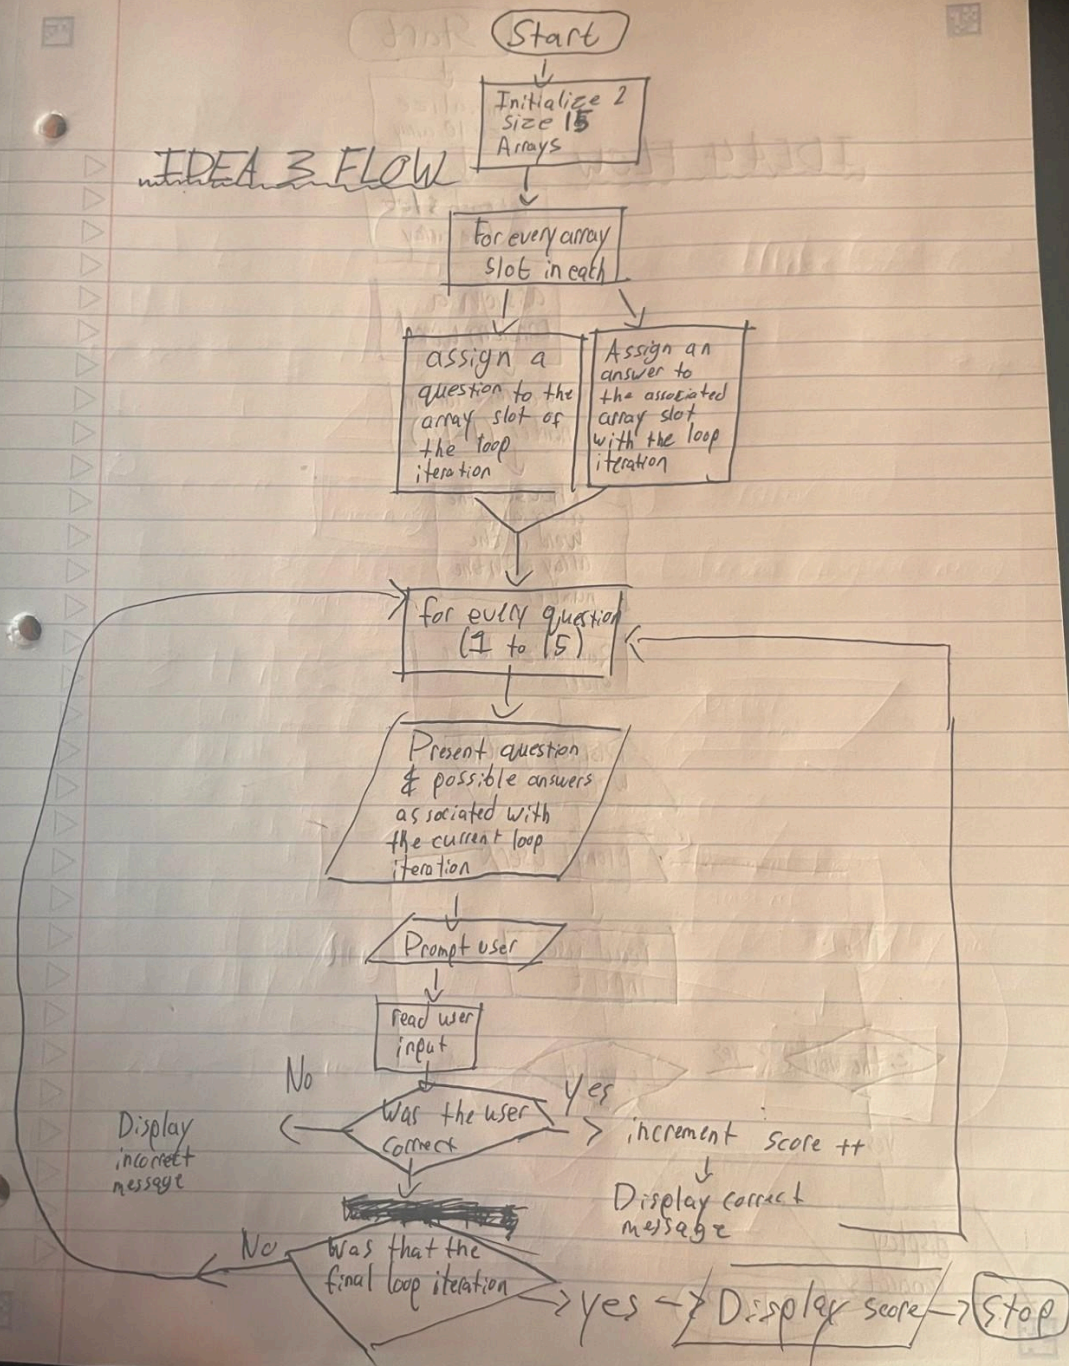 Start
Initialize 2
size 15
Arrays
IDEA 3 FLOW
For every array
slot in each
assign a
question to the
array slot of
the loop
iteration
Assign an
answer to
the associated
array slot
with the loop
iteration
for every question
(1 to 15)
Present question
& possible answers
associated with
the current loop
iteration
Prompt user
read user
input
No
Yes
Was the user
correct
Display
incorrect
message
increment score ++
Display correct
message
No
Was that the
final loop iteration
yes
Display score
Stop